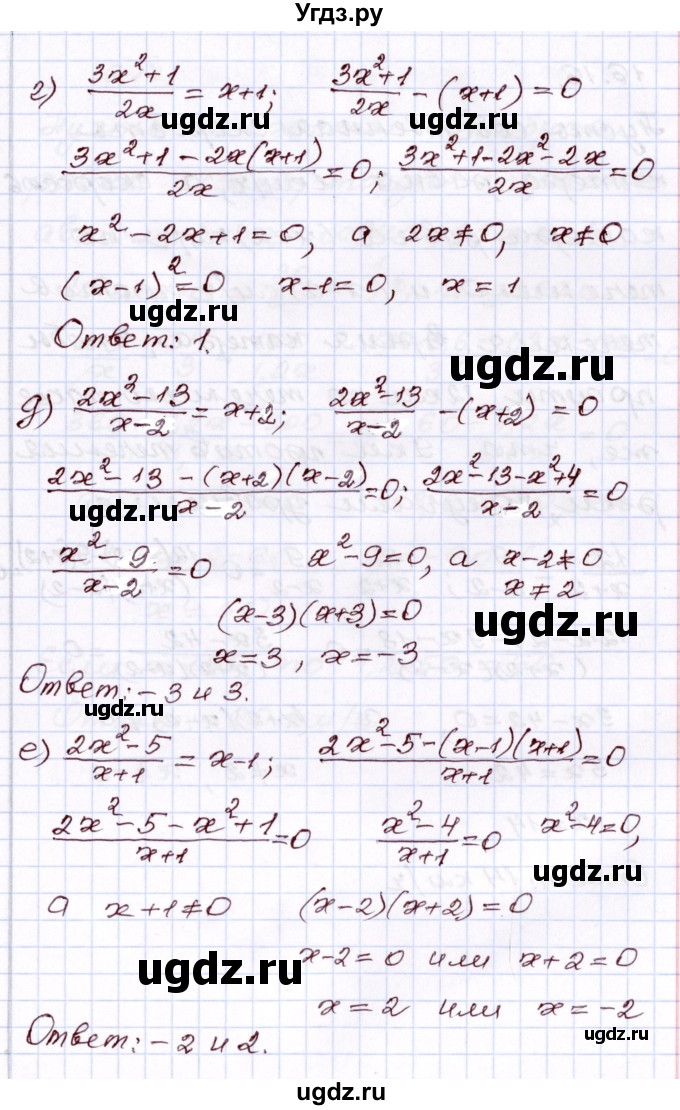 Угдз.ру
г) (3x²+1)/(2x) = x+1; (3x²+1)/(2x) − (x+1) = 0
ugdz.ru ugdz.ru
(3x²+1−2x(x+1))/(2x) = 0; (3x²+1−2x²−2x)/(2x) = 0
x²−2x+1=0, а 2x≠0, x≠0
(x−1)²=0 x−1=0, x=1
ugdz.ru
Ответ: 1.
ugdz.ru
д) (2x²−13)/(x−2) = x+2; (2x²−13)/(x−2) − (x+2) = 0
(2x²−13−(x+2)(x−2))/(x−2) = 0; (2x²−13−x²+4)/(x−2) = 0
ugdz.ru
(x²−9)/(x−2) = 0 x²−9=0, а x−2≠0
x≠2
(x−3)(x+3)=0
ugdz.ru
x=3, x=−3
Ответ: −3 и 3.
ugdz.ru
е) (2x²−5)/(x+1) = x−1; (2x²−5−(x−1)(x+1))/(x+1) = 0
(2x²−5−x²+1)/(x+1) = 0 (x²−4)/(x+1) = 0 x²−4=0,
ugdz.ru
а x+1≠0 (x−2)(x+2)=0
x−2=0 или x+2=0
ugdz.ru
x=2 или x=−2
ugdz.ru
Ответ: −2 и 2.
ugdz.ru